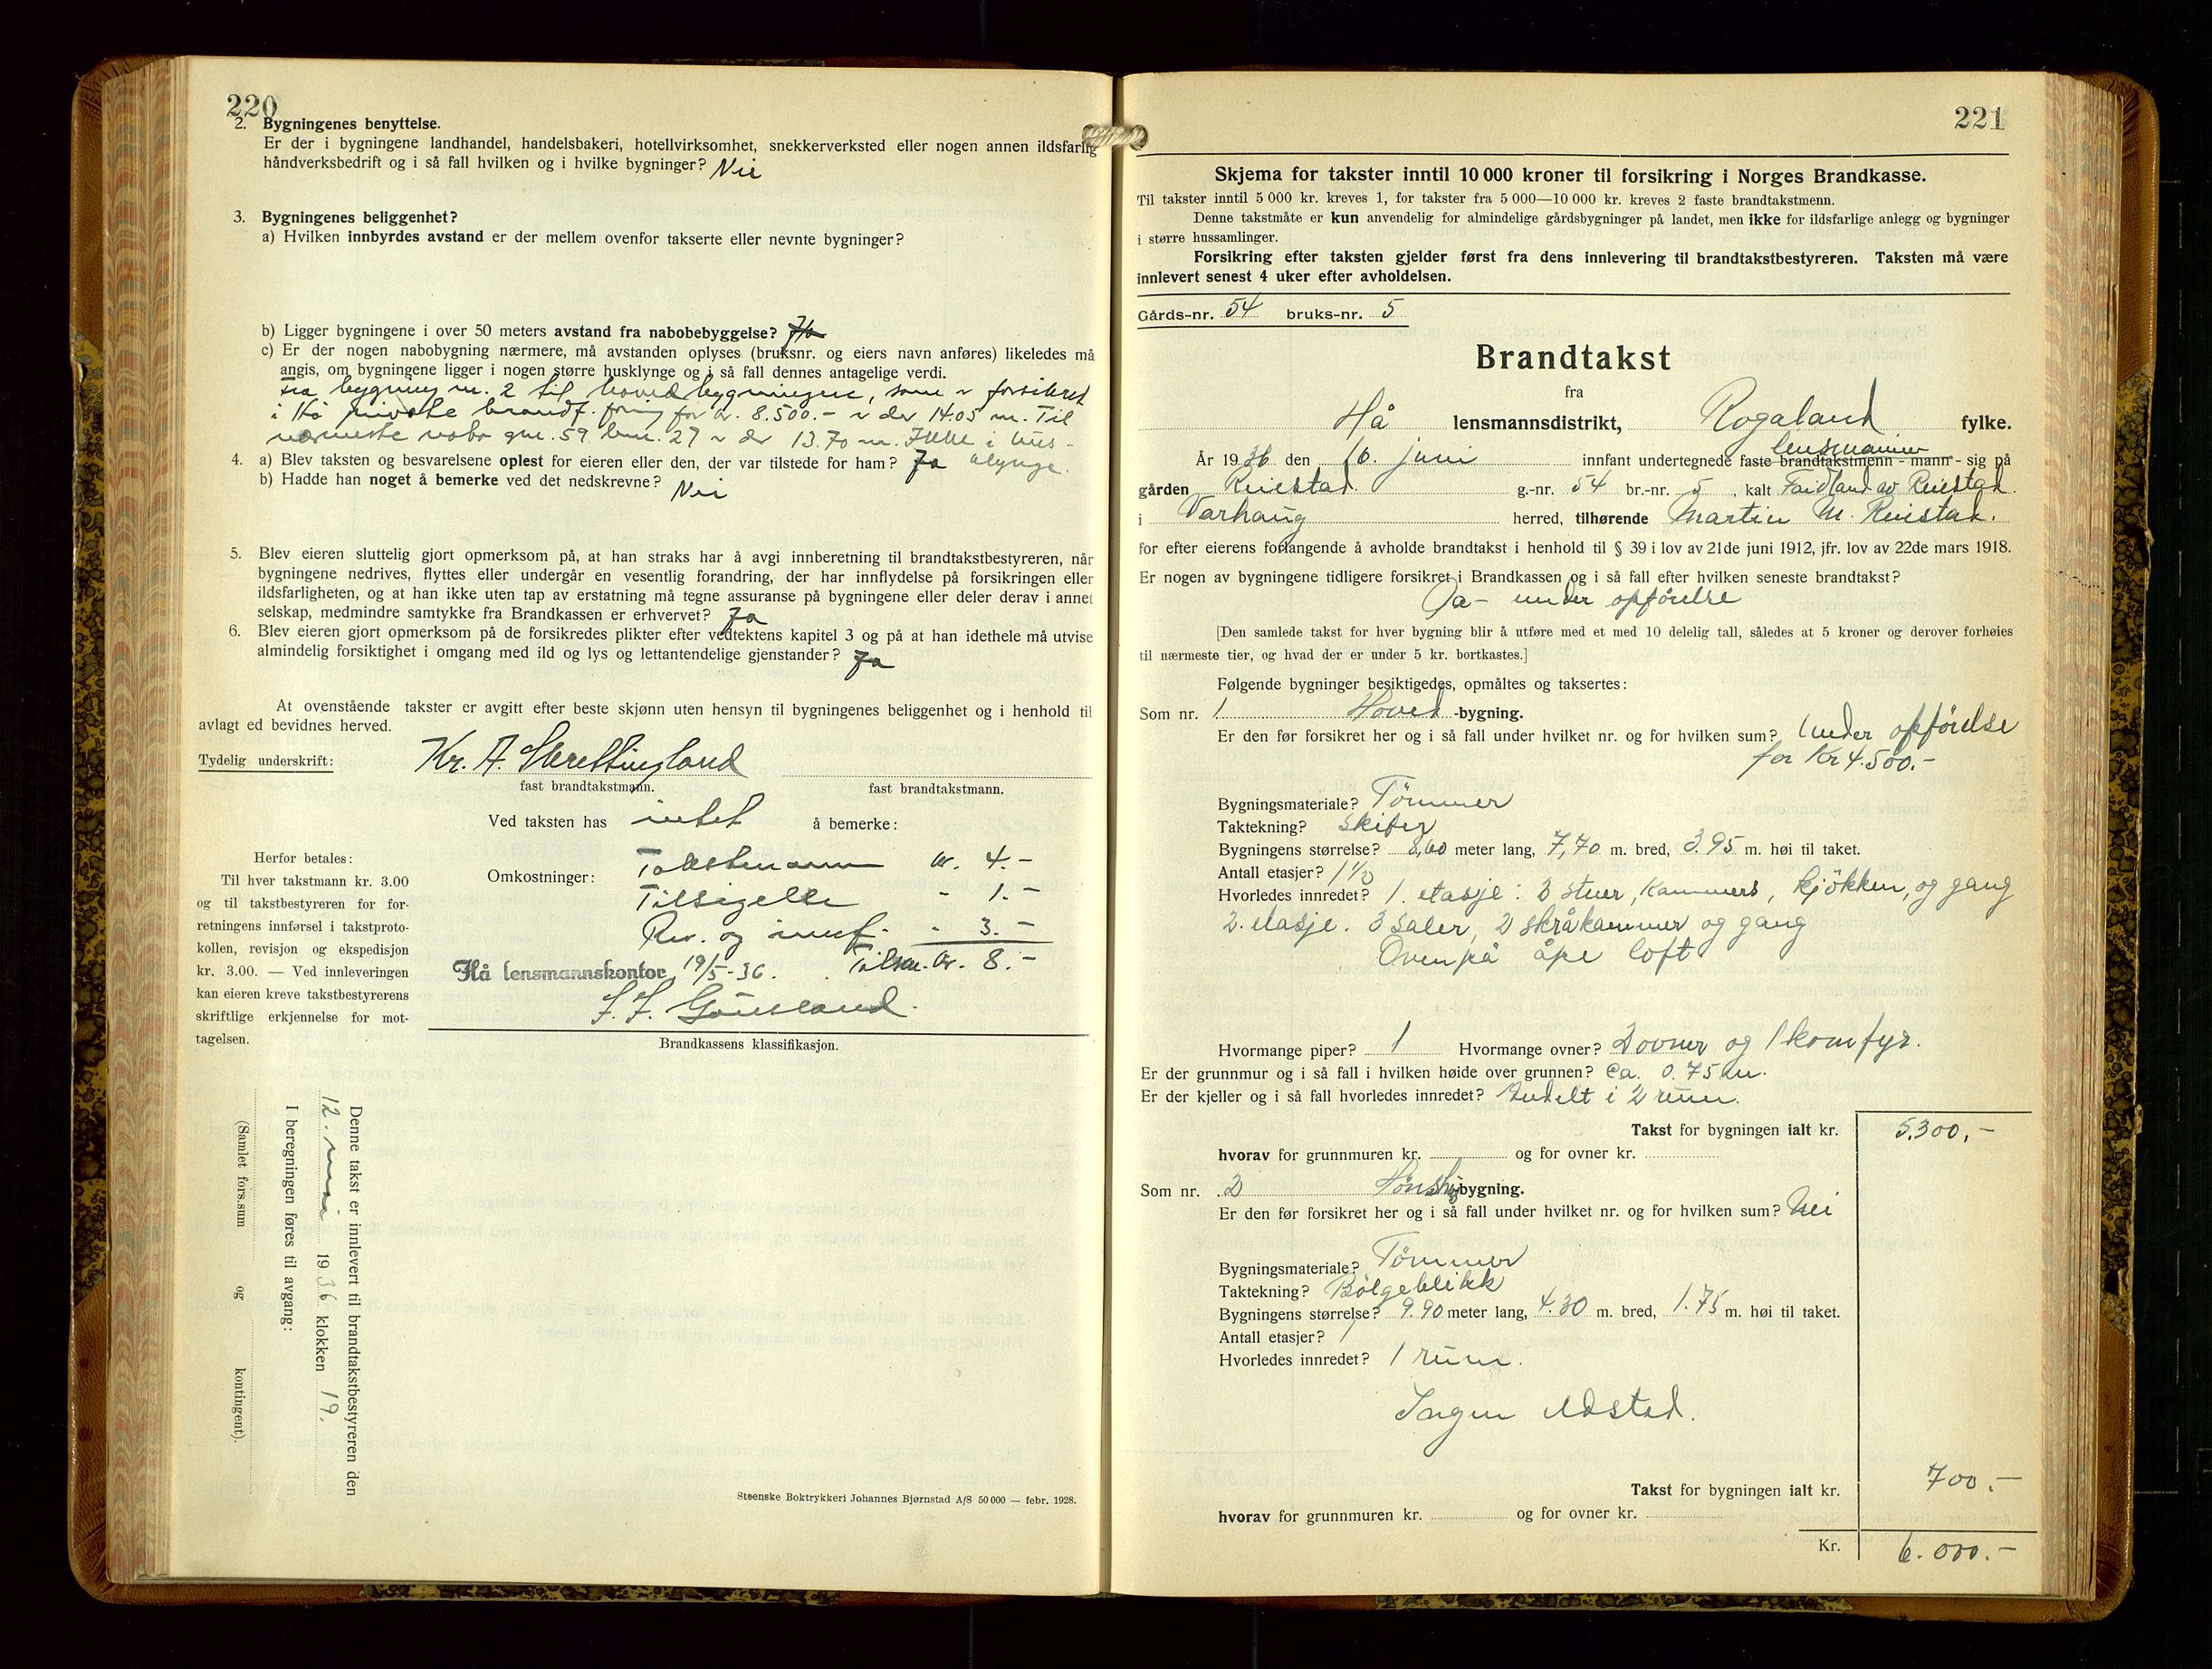 220
2. Bygningenes benyttelse.
Er der i bygningene landhandel, handelsbakeri, hotellvirksomhet, snekkerverksted eller nogen annen ildsfarlig
håndverksbedrift og i så fall hvilken og i hvilke bygninger? Nei
3. Bygningenes beliggenhet?
a) Hvilken innbyrdes avstand er der mellem ovenfor takserte eller nevnte bygninger?
b) Ligger bygningene i over 50 meters avstand fra nabobebyggelse?
c) Er der nogen nabobygning nærmere, må avstanden oplyses (bruksnr. og eiers navn anføres) likeledes må
angis, om bygningene ligger i nogen større husklynge og i så fall dennes antagelige verdi.
Fra bygning nr. 2 til hovedbygningene, som er forsikret
i Hå private brandf. for kr. 8.500.- er der 14.05 m. Til
nærmeste nabo gnr. 59 bnr. 27 er der 13.70 m. Ikke i hus-
klynge.
4. a) Blev taksten og besvarelsene oplest for eieren eller den, der var tilstede for ham? Ja
b) Hadde han noget å bemerke ved det nedskrevne? Nei
5. Blev eieren sluttelig gjort opmerksom på, at han straks har å avgi innberetning til brandtakstbestyreren, når
bygningene nedrives, flyttes eller undergår en vesentlig forandring, der har innflydelse på forsikringen eller
ildsfarligheten, og at han ikke uten tap av erstatning må tegne assuranse på bygningene eller deler derav i annet
selskap, medmindre samtykke fra Brandkassen er erhvervet? Ja
6. Blev eieren gjort opmerksom på de forsikredes plikter efter vedtektens kapitel 3 og på at han idethele må utvise
almindelig forsiktighet i omgang med ild og lys og lettantendelige gjenstander? Ja
At ovenstående takster er avgitt efter beste skjønn uten hensyn til bygningenes beliggenhet og i henhold til
avlagt ed bevidnes herved.
Tydelig underskrift: Kr. A. Skrettingland
fast brandtakstmann. fast brandtakstmann.
Ved taksten has intet å bemerke:
Herfor betales:
Til hver takstmann kr. 3.00
og til takstbestyreren for for-
retningens innførsel i takstproto-
kollen, revisjon og ekspedisjon
kr. 3.00. — Ved innleveringen
kan eieren kreve takstbestyrerens
skriftlige erkjennelse for mot-
tagelsen.
Omkostninger: Takstmann kr. 4.-
Tilsigelse - 1.-
Rev. og innf. - 3.-
Hå lensmannskontor 19/5-36. Tilsm. kr. 8.-
Brandkassens klassifikasjon.
Denne takst er innlevert til brandtakstbestyreren den
12. mai 1936 klokken 19.
I beregningen føres til avgang:
(Samlet fors.sum og kontingent).
Steenske Boktrykkeri Johannes Bjørnstad A/S 50 000 — febr. 1928.
221
Skjema for takster inntil 10 000 kroner til forsikring i Norges Brandkasse.
Til takster inntil 5 000 kr. kreves 1, for takster fra 5 000—10 000 kr. kreves 2 faste brandtakstmenn.
Denne takstmåte er kun anvendelig for almindelige gårdsbygninger på landet, men ikke for ildsfarlige anlegg og bygninger
i større hussamlinger.
Forsikring efter taksten gjelder først fra dens innlevering til brandtakstbestyreren. Taksten må være
innlevert senest 4 uker efter avholdelsen.
Gårds-nr. 54 bruks-nr. 5
Brandtakst
fra
Hå lensmannsdistrikt, Rogaland fylke.
lensmannen
År 1936 den 16. juni innfant undertegnede faste brandtakstmenn - mann - sig på
gården Reiestad g.-nr. 54 br.-nr. 5, kalt av Reiestad
i Varhaug herred, tilhørende Martin M. Reiestad.
for efter eierens forlangende å avholde brandtakst i henhold til § 39 i lov av 21de juni 1912, jfr. lov av 22de mars 1918.
Er nogen av bygningene tidligere forsikret i Brandkassen og i så fall efter hvilken seneste brandtakst?
Ja - under opførelse
[Den samlede takst for hver bygning blir å utføre med et med 10 delelig tall, således at 5 kroner og derover forhøies
til nærmeste tier, og hvad der er under 5 kr. bortkastes.]
Følgende bygninger besiktigedes, opmåltes og taksertes:
Som nr. 1 Hoved -bygning.
Er den før forsikret her og i så fall under hvilket nr. og for hvilken sum? Under opførelse
for Kr 4.500.-
Bygningsmateriale? Tømmer
Taktekning? Skifer
Bygningens størrelse? 8,60 meter lang, 7,70 m. bred, 3.95 m. høi til taket.
Antall etasjer? 1½
Hvorledes innredet? 1. etasje: 2 stuer, kammers, kjøkken, og gang
2. etasje. 3 saler, 2 skråkammer og gang
Ovenpå åpe loft
Hvormange piper? 1 Hvormange ovner? 2 ovner og 1 komfyr.
Er der grunnmur og i så fall i hvilken høide over grunnen? Ca. 0.75 m.
Er der kjeller og i så fall hvorledes innredet? Indelt i 2 rum.
Takst for bygningen ialt kr. 5.300,-
hvorav for grunnmuren kr. og for ovner kr.
Som nr. 2 Hønsehus bygning.
Er den før forsikret her og i så fall under hvilket nr. og for hvilken sum? Nei
Bygningsmateriale? Tømmer
Taktekning? Bølgeblikk
Bygningens størrelse? 9.90 meter lang, 4.30 m. bred, 1.75 m. høi til taket.
Antall etasjer? 1
Hvorledes innredet? 1 rum.
Ingen ildsted.
Takst for bygningen ialt kr. 700.-
hvorav for grunnmuren kr. og for ovner kr.
Kr. 6.000.-